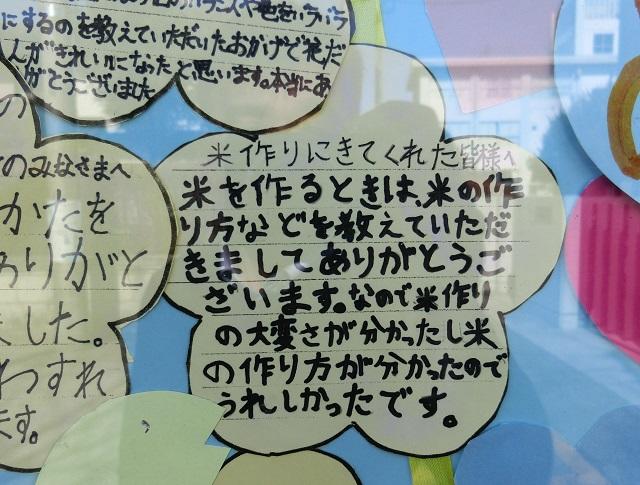 にするのを教えていただいたおかげで花だ
んがきれいになったと思います。本当にあ
がとうございました
米作りにきてくれた皆様へ
米を作るときは、米の作
り方などを教えていただ
きましてありがとうご
ざいます。なので米作り
の大変さが分かったし米
の作り方が分かったので
うれしかったです。
の
のみなさまへ
かたを
ありがと
ました。
わすれ
ます。